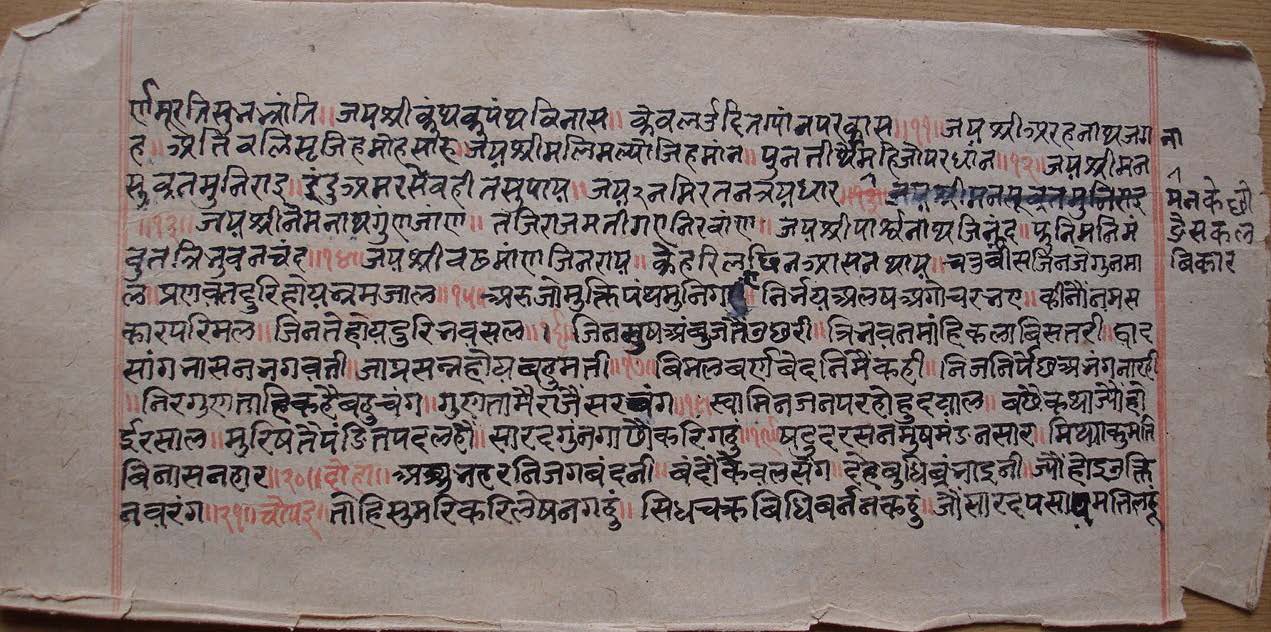 र्णमूरतिसुनभ्रांति॥ जयश्रीकुंथकुपंथविनास॥ केवल उदित ग्यांनपरकास॥११॥ जयश्रीअरहनाथजग ना
ह॥ अतिवलि जिहमोहसीह॥ जयश्रीमलिमल्यौजिहमांन॥ पुनतीर्थमहिजोपरधांन॥१२॥ जयश्रीमन
सुव्रतमुनिराइ॥ इंदुअमरसेवहीतसुपाय॥ जय नमिरतनत्रयधार॥ मनकेछौ
॥१३॥ जयश्रीनेमनाथगुंणजाण॥ तजिराजमतीगएनिरवांण॥ जयश्रीपार्श्वनाथजिनंद॥ फुनिमनिमं डैसकल
वुतत्रिभुवनचंद॥१४॥ जयश्रीवर्धमांणजिनराय॥ केहरिलछिनआसनथाय॥ चउवीसजिनजेगुनमा बिकार
ल॥ प्रणवतदुरिहोयभ्रमजाल॥१५॥ अरुजोमुक्तिपंथमुनिग निर्भयअलषअगोचर कीनौंनमस
कारपरिमल॥ जिनतेहोयदुरिभवसल॥ जिनमुषअंबुजतेउछरी॥ त्रिभवनमांहिकलाबिसतरी॥ द्वाद
सांगभासनभगवती॥ जाप्रसन्नहोयबहुमती॥१७॥ बिमलबर्णबेदनिमैकही॥ निजनिर्पे अभंग
॥ निरगुणताहिकहैबहुचंग॥ गुणतामैराजैंसरबंग॥१८॥ स्वामिनजनपरहोहुदयाल॥ बधैकथाज्यौंहो
ईरसाल॥ मुरिषतैपंडितपदलहौं॥ सारदगुनगाछौंकरिगहुं॥१९॥ षटुदरसनमुषमंडनसार॥ मिथ्याकुमति
बिनासनहार॥२०॥ दोहा॥ हरनिजगबंदनी॥ बंदौंकेवलसंग॥ देहबुधि ज्यौंहोइ
नवरंग॥२१॥ चौपइ॥ तोहिसुमरिकरिलेषनगहुं॥ सिधचक्रबिधिबर्ननकहुं॥ जौसारदपसा मतिलहू